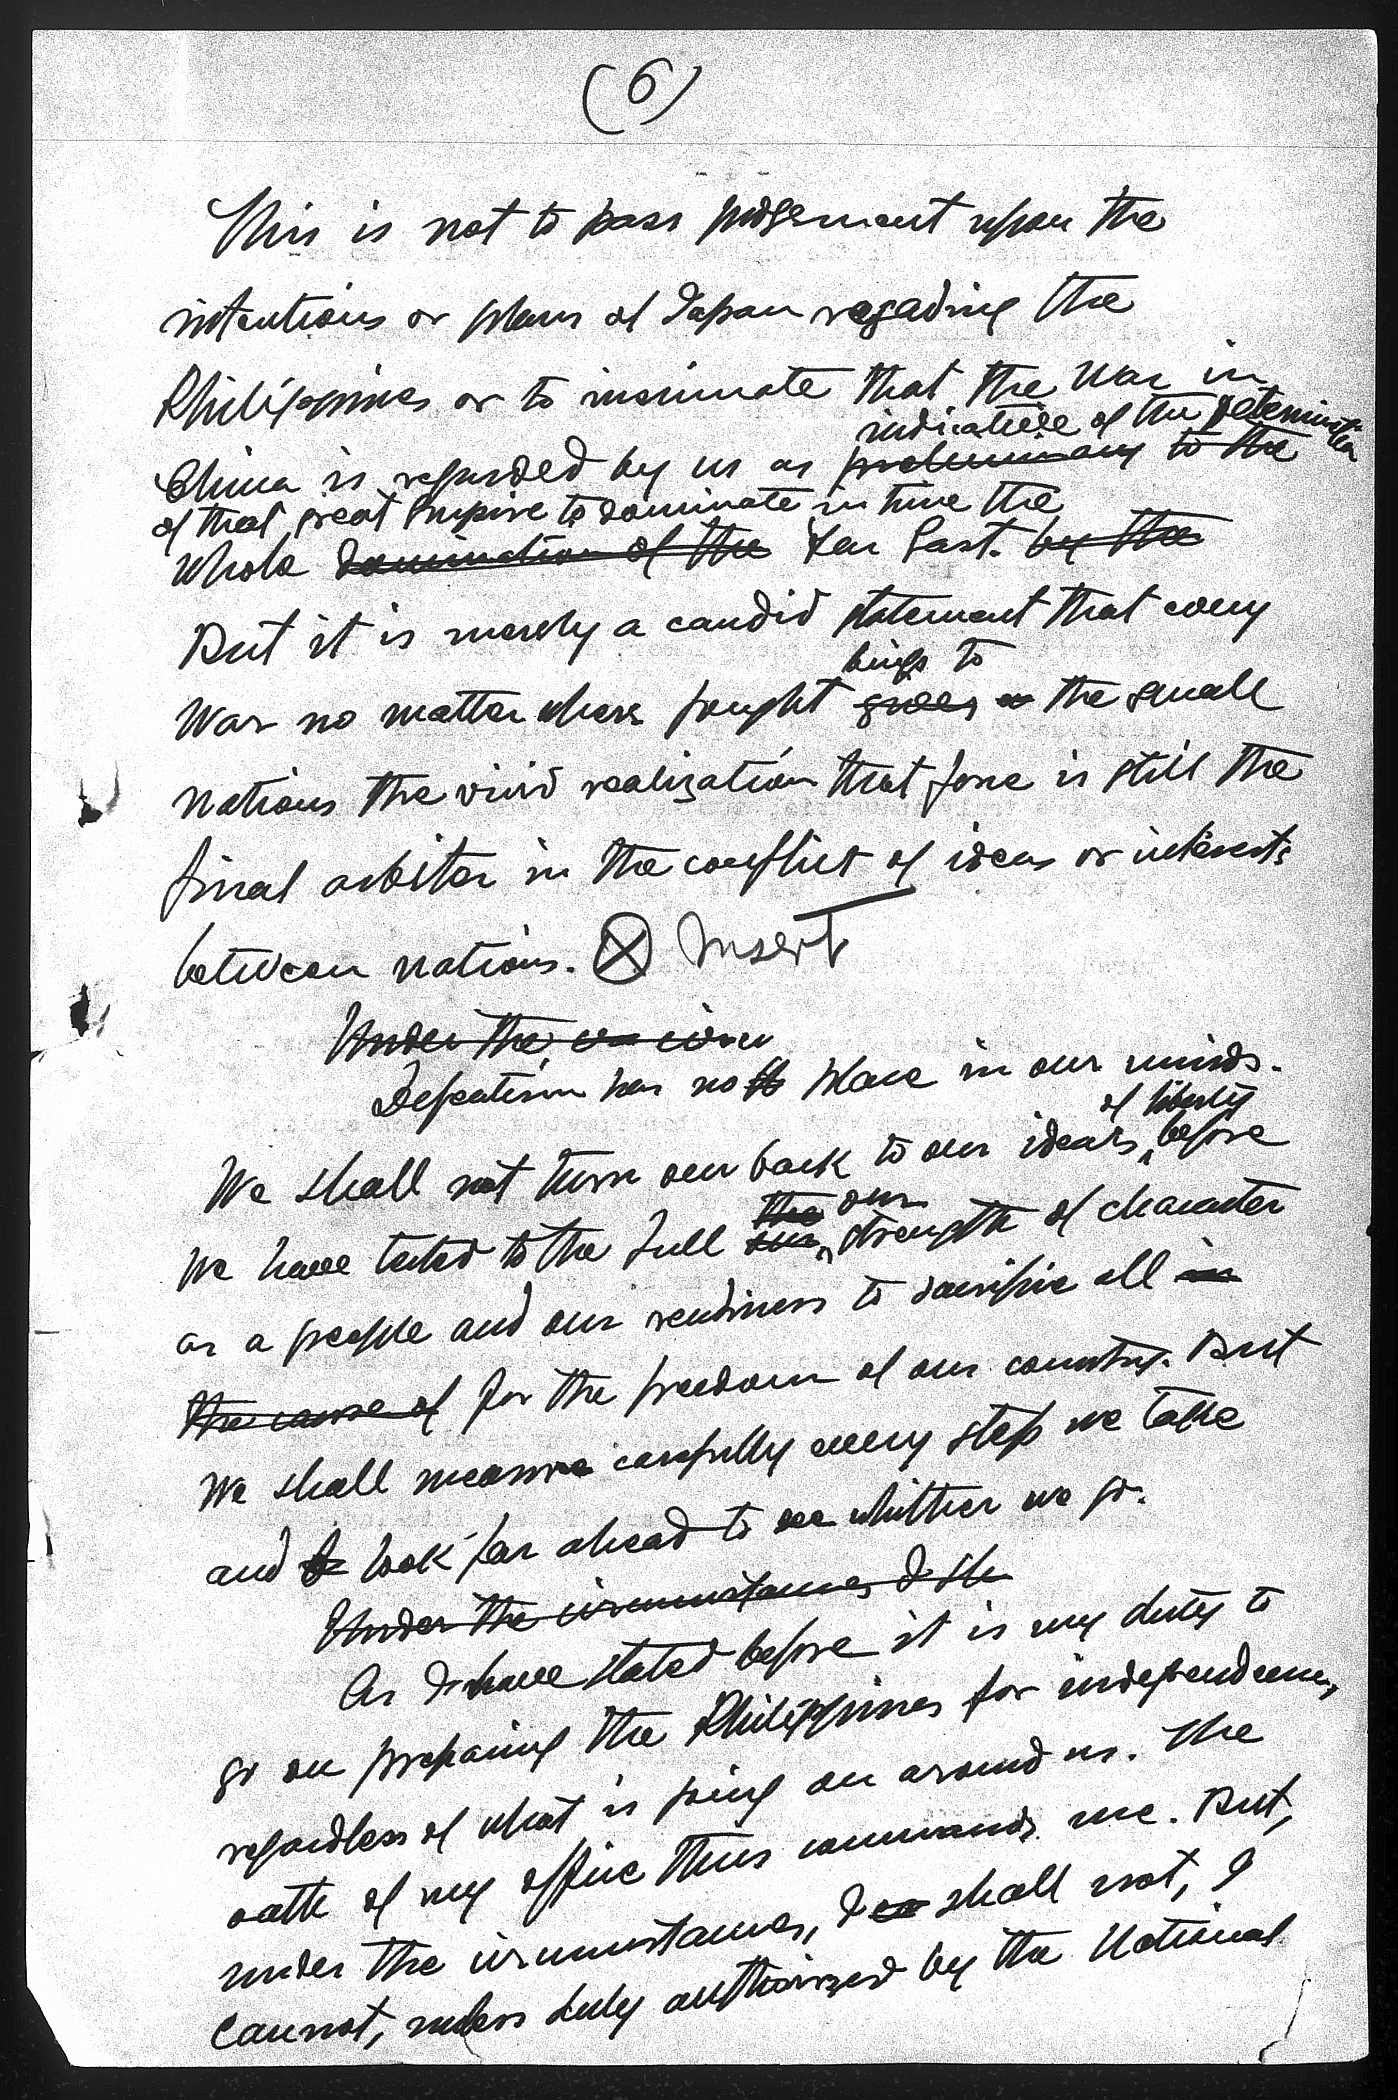 (6)
This is not to pass judgement upon the
intentions or plans of Japan regading the
Philippines or to insinuate that the war in
indicative of the determination
China is regarded by us as preliminary to the
of that great Empire to dominate in time the
whole domination of the Far East. by the
But it is merely a candid statement that every
brings to
war no matter where fought gives the small
nations the vivid realization that force is still the
final arbiter in the conflict of ideas or interests
between nations. ⓧ Insert
Under the
Defeatism has no place in our minds.
of liberty
We shall not turn our back to our ideals, before
the our
we have tested to the full our strength of character
as a people and our readiness to sacrifice all in
the cause of for the freedom of our country. But
we shall measure carefully every step we take
and to look far ahead to see whither we go.
Under the circumstances I sh
As I have stated before it is my duty to
go on preparing the Philippines for independence,
regardless of what is going on around us. The
oath of my office thus commands me. But,
under the circumstances, I shall not, I
cannot, unless duly authorized by the National